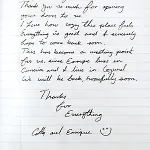 Thank you so much for opening
your door to us.
I love how cozy this place feels.
Everything is great and I sincerely
hope to come back soon.
This has become a meeting point
for us since Enrique lives in
Geneva and I live in
We will be back, hopefully soon,
Thanks
for
Everything
and Enrique